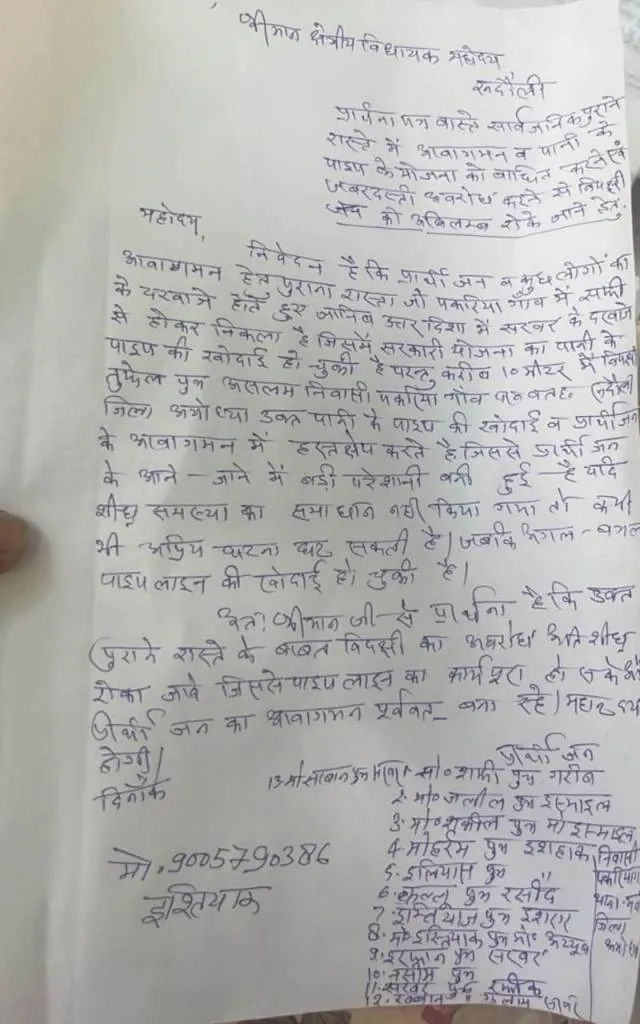 श्रीमान क्षेत्रीय विधायक महोदय
रुदौली
प्रार्थना पत्र वास्ते सार्वजनिक पुराने
रास्ते में आवागमन व पानी के
पाइप के योजना को बाधित करने एवं
जबरदस्ती अवरोध करने से विपक्षी
को अविलम्ब रोके जाने हेतु
महोदय,
निवेदन है कि प्रार्थी जन व कुछ लोगों का
आवागमन हेतु पुराना रास्ता जो पकरिया गाँव में सफी
के दरवाजे होते हुए जानिब उत्तर दिशा में सरवर के दरवाजे
से होकर निकला है जिसमें सरकारी योजना का पानी के
पाइप की खोदाई हो चुकी है परन्तु करीब 10 मीटर में विपक्षी
तुफेल पुत्र असलम निवासी पकरिया गाँव रुदौली
जिला अयोध्या उक्त पानी के पाइप की खोदाई व प्रार्थीजन
के आवागमन में हस्तक्षेप करते है जिससे प्रार्थी जन
के आने - जाने में बड़ी परेशानी बनी हुई है यदि
शीघ्र समस्या का समाधान नहीं किया गया तो कभी
भी अप्रिय घटना घट सकती है। जबकि अगल - बगल
पाइप लाइन की खोदाई हो चुकी है।
अतः श्रीमान जी से प्रार्थना है कि उक्त
पुराने रास्ते के बाबत विपक्षी का अवरोध अति शीघ्र
रोका जावे जिससे पाइप लाइन का कार्य पूरा हो सके और
प्रार्थी जन का आवागमन पूर्ववत् बना रहे। महान दया
होगी।
दिनाँक
प्रार्थी जन
मो० शफी पुत्र गरीब
2. मो० जलील पुत्र इस्माइल
3. मो० शकील पुत्र मो इस्माइल
4. मोहर्रम पुत्र इशहाक
5. इलियास पुत्र "
6. कल्लू पुत्र रसीद
7. इम्तियाज पुत्र इशरार
8. मो० इस्तियाक पुत्र मो० अय्यूब
9. इरफान पुत्र सरवर
10. नसीम पुत्र
11. सरवर पुत्र
12.
निवासी
पकरिया
थाना
जिला
मो. 9005790386
इश्तियाक